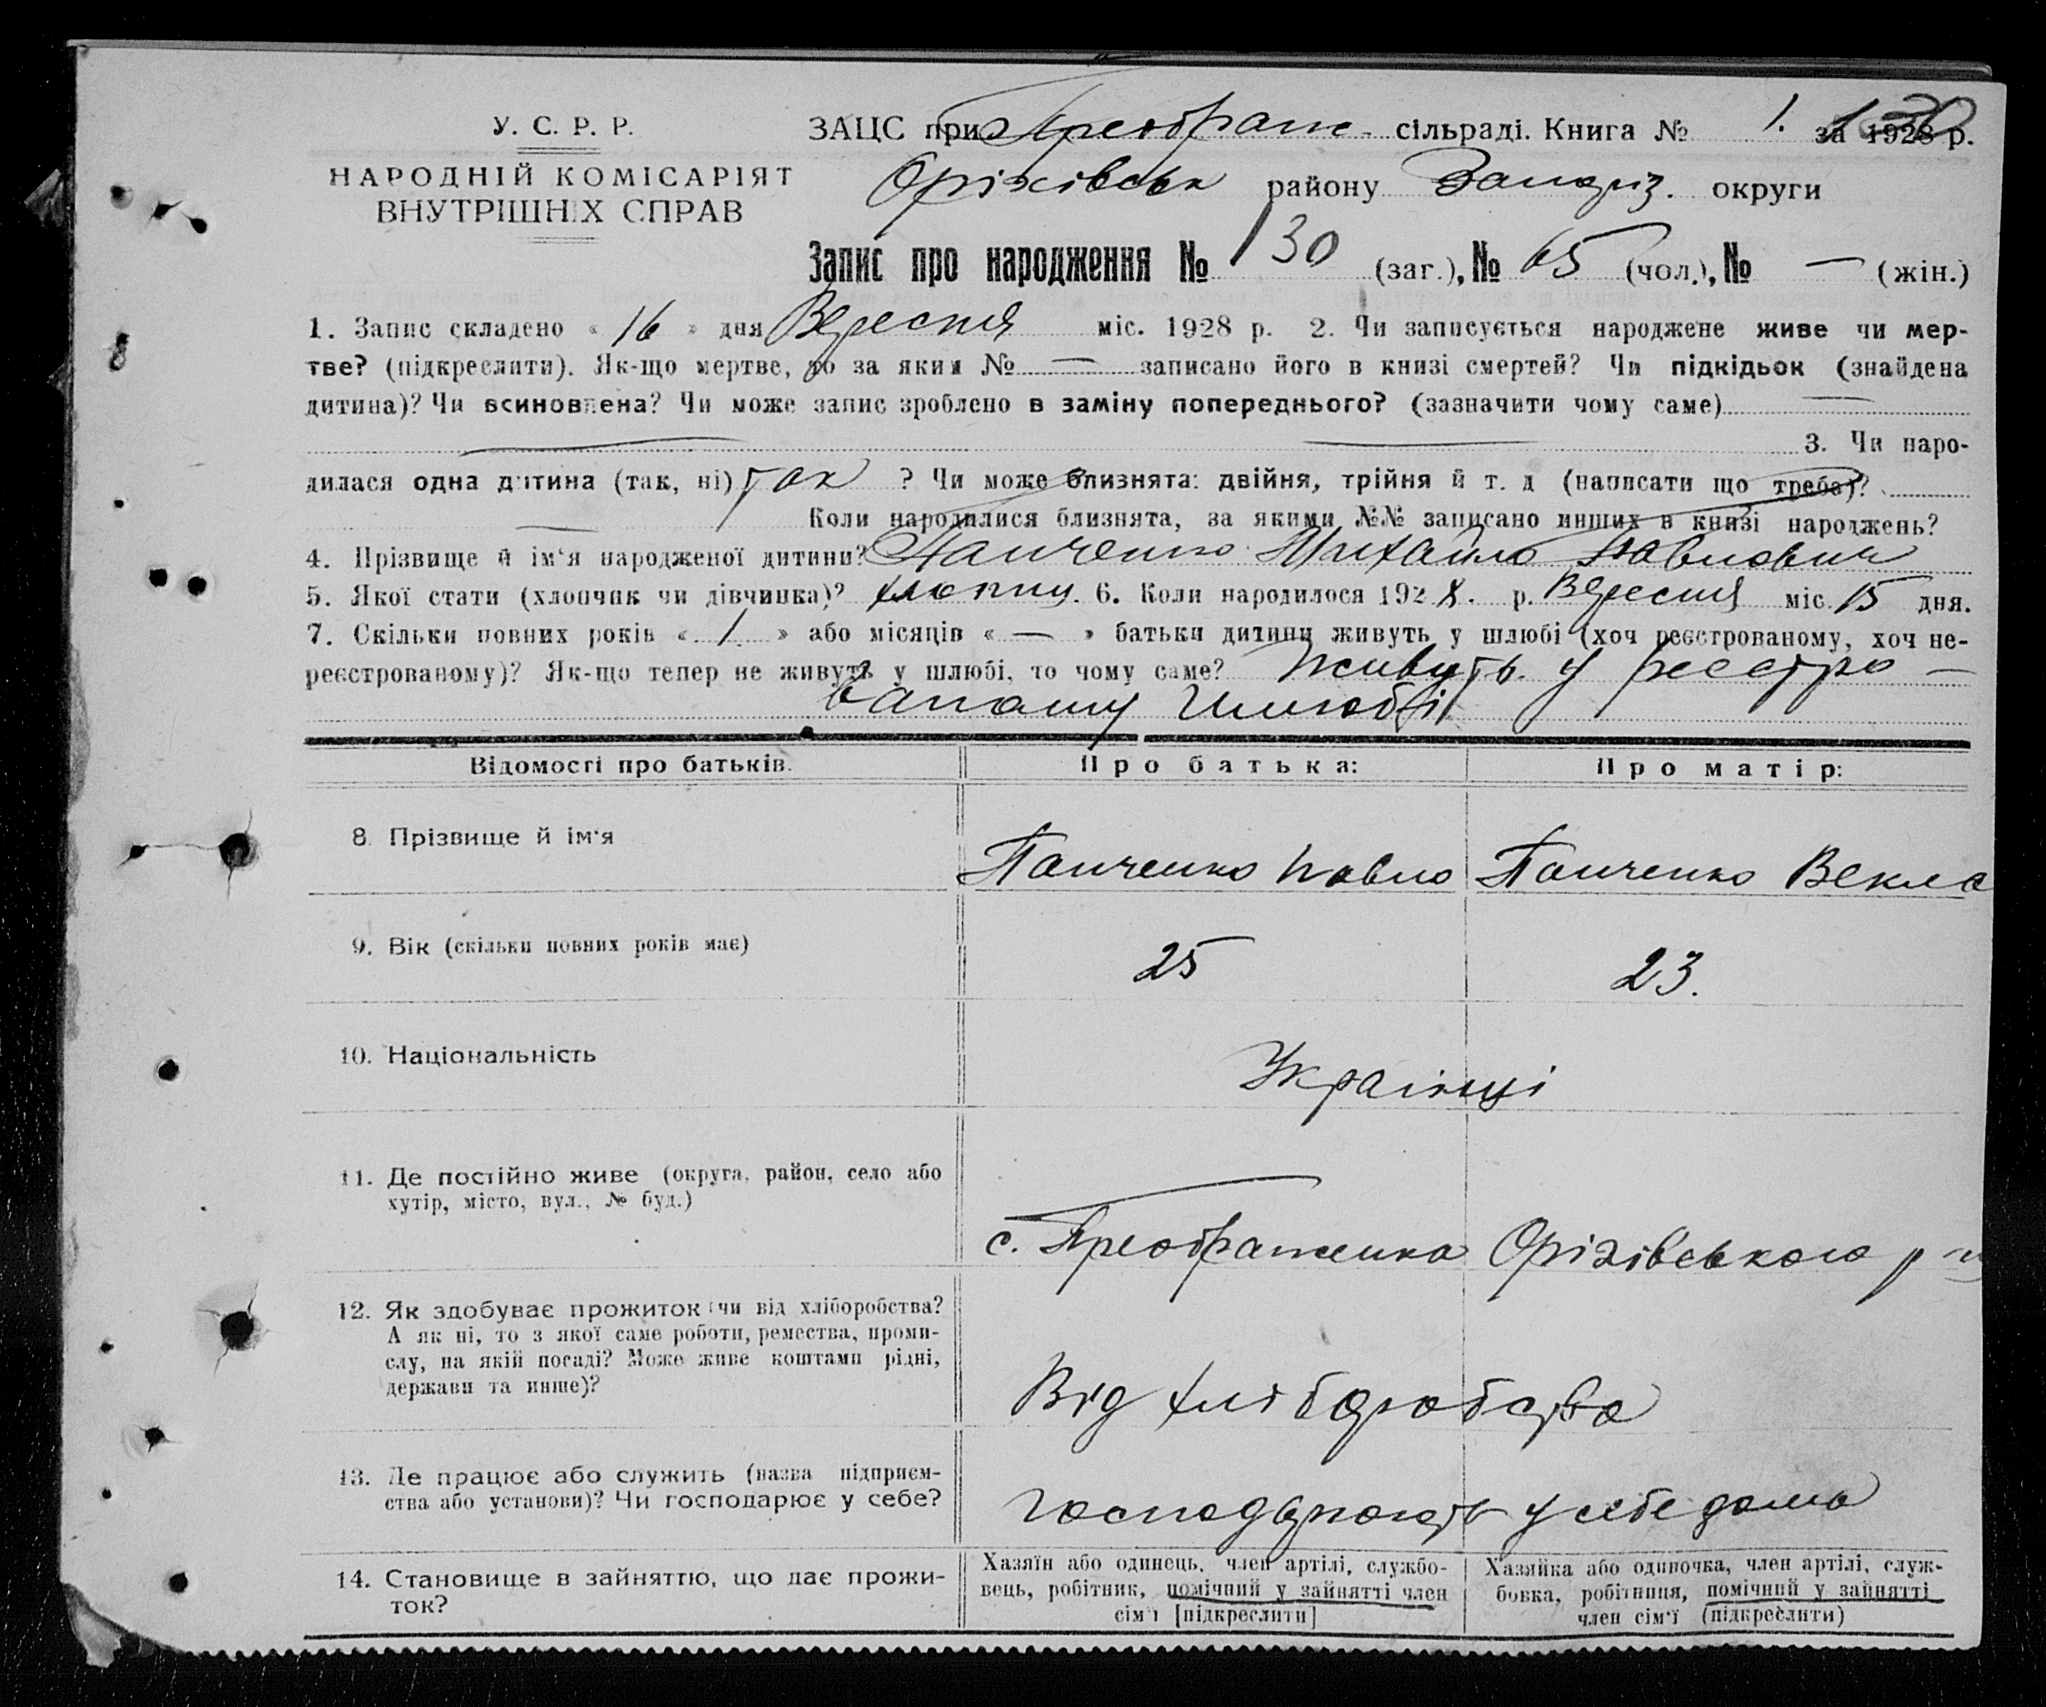 130
У. С. Р. Р.
НАРОДНІЙ КОМІСАРІЯТ
ВНУТРІШНІХ СПРАВ
ЗАЦС при Преображ- сільраді. Книга № 1. за 1928 р.
Оріхівськ району Запоріз. округи
Запис про народження № 130 (заг.), № 65 (чол.), № — (жін.)
1. Запис складено « 16 » дня Вересня міс. 1928 р. 2. Чи записується народжене живе чи мер-
тве? (підкреслити). Як-що мертве, то за яким № — записано його в книзі смертей? Чи підкідьок (знайдена
дитина)? Чи всиновлена? Чи може запис зроблено в заміну попереднього? (зазначити чому саме) —
— — 3. Чи наро-
дилася одна дитина (так, ні) так ? Чи може близнята: двійня, трійня й т. д (написати що треба)?
— Коли народилися близнята, за якими №№ записано инших в книзі народжень?
4. Прізвище й ім'я народженої дитини? Панченко Михайло Павлович
5. Якої стати (хлопчик чи дівчинка)? хлопчи. 6. Коли народилося 1928. р. Вересня міс. 15 дня.
7. Скільки повних років « 1 » або місяців « — » батьки дитини живуть у шлюбі (хоч реєстрованому, хоч не-
реєстрованому)? Як-що тепер не живуть у шлюбі, то чому саме? Живуть у реєстро-
ваному шлюбі
Відомості про батьків. Про батька: Про матір:
8. Прізвище й ім'я Панченко Павло Панченко Векла
9. Вік (скільки повних років має) 25 23.
10. Національність Українці
11. Де постійно живе (округа, район, село або
хутір, місто, вул., № буд.)
с. Преображенка Оріхівського р-ну
12. Як здобуває прожиток (чи від хліборобства?
А як ні, то з якої саме роботи, ремества, проми-
слу, на якій посаді? Може живе коштами рідні,
держави та инше)?
Від хліборобства
13. Де працює або служить (назва підприєм-
ства або установи)? Чи господарює у себе?
господарюють у себе дома
14. Становище в зайняттю, що дає прожи-
ток?
Хазяїн або одинець, член артілі, службо-
вець, робітник, помічний у зайнятті член
сім'ї [підкреслити]
Хазяйка або одиночка, член артілі, служ-
бовка, робітниця, помічний у зайнятті
член сім'ї (підкреслити)